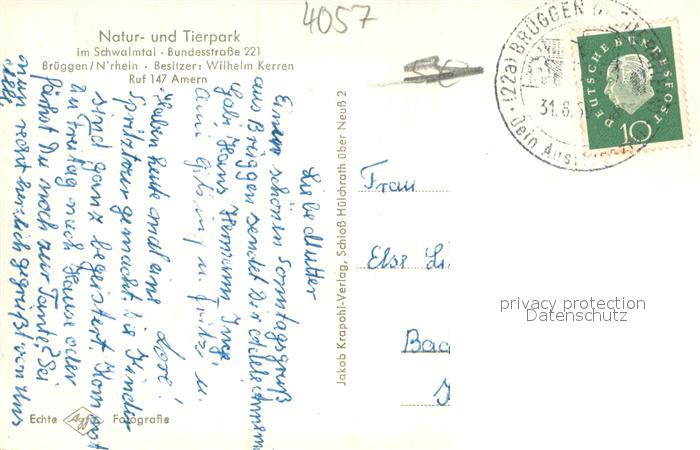 4057
Natur- und Tierpark
im Schwalmtal · Bundesstraße 221
Brüggen/N'rhein · Besitzer: Wilhelm Kerren
Ruf 147 Amern
Liebe Mutter
Einen schönen Sonntagsgruß
aus Brüggen sendet Dir
Gabi, Hans Hermann, Inge,
u. Fritz u.
Lore!
Haben heute mal eine
Spritztour gemacht. Die Kinder
sind ganz begeistert. Kommst
Du Freitag nach Hause oder
fährst Du noch zur Tante? Sei
nun recht herzlich gegrüßt von uns
allen
Echte Agfa Fotografie
Jakob Krapohl-Verlag, Schloß Hülchrath über Neuß 2
Frau
Else
(22a) BRÜGGEN
31.8.
Dein
DEUTSCHE BUNDESPOST
10
privacy protection
Datenschutz